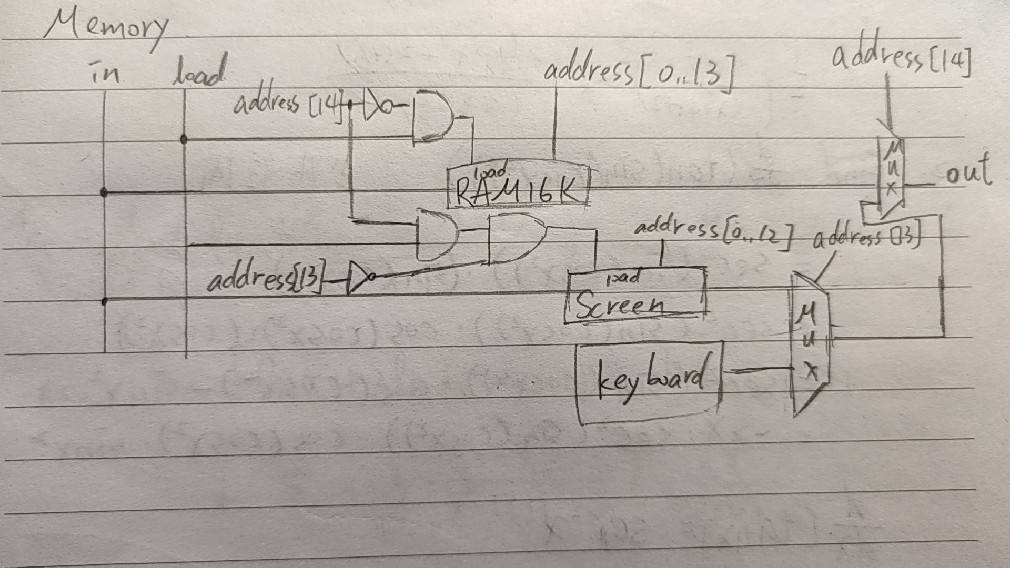 Memory
in load address[0..13] address[14]
address[14]
load
RAM16K
Mux out
address[0..12] address[13]
address[13]
load
Screen
Mux
keyboard